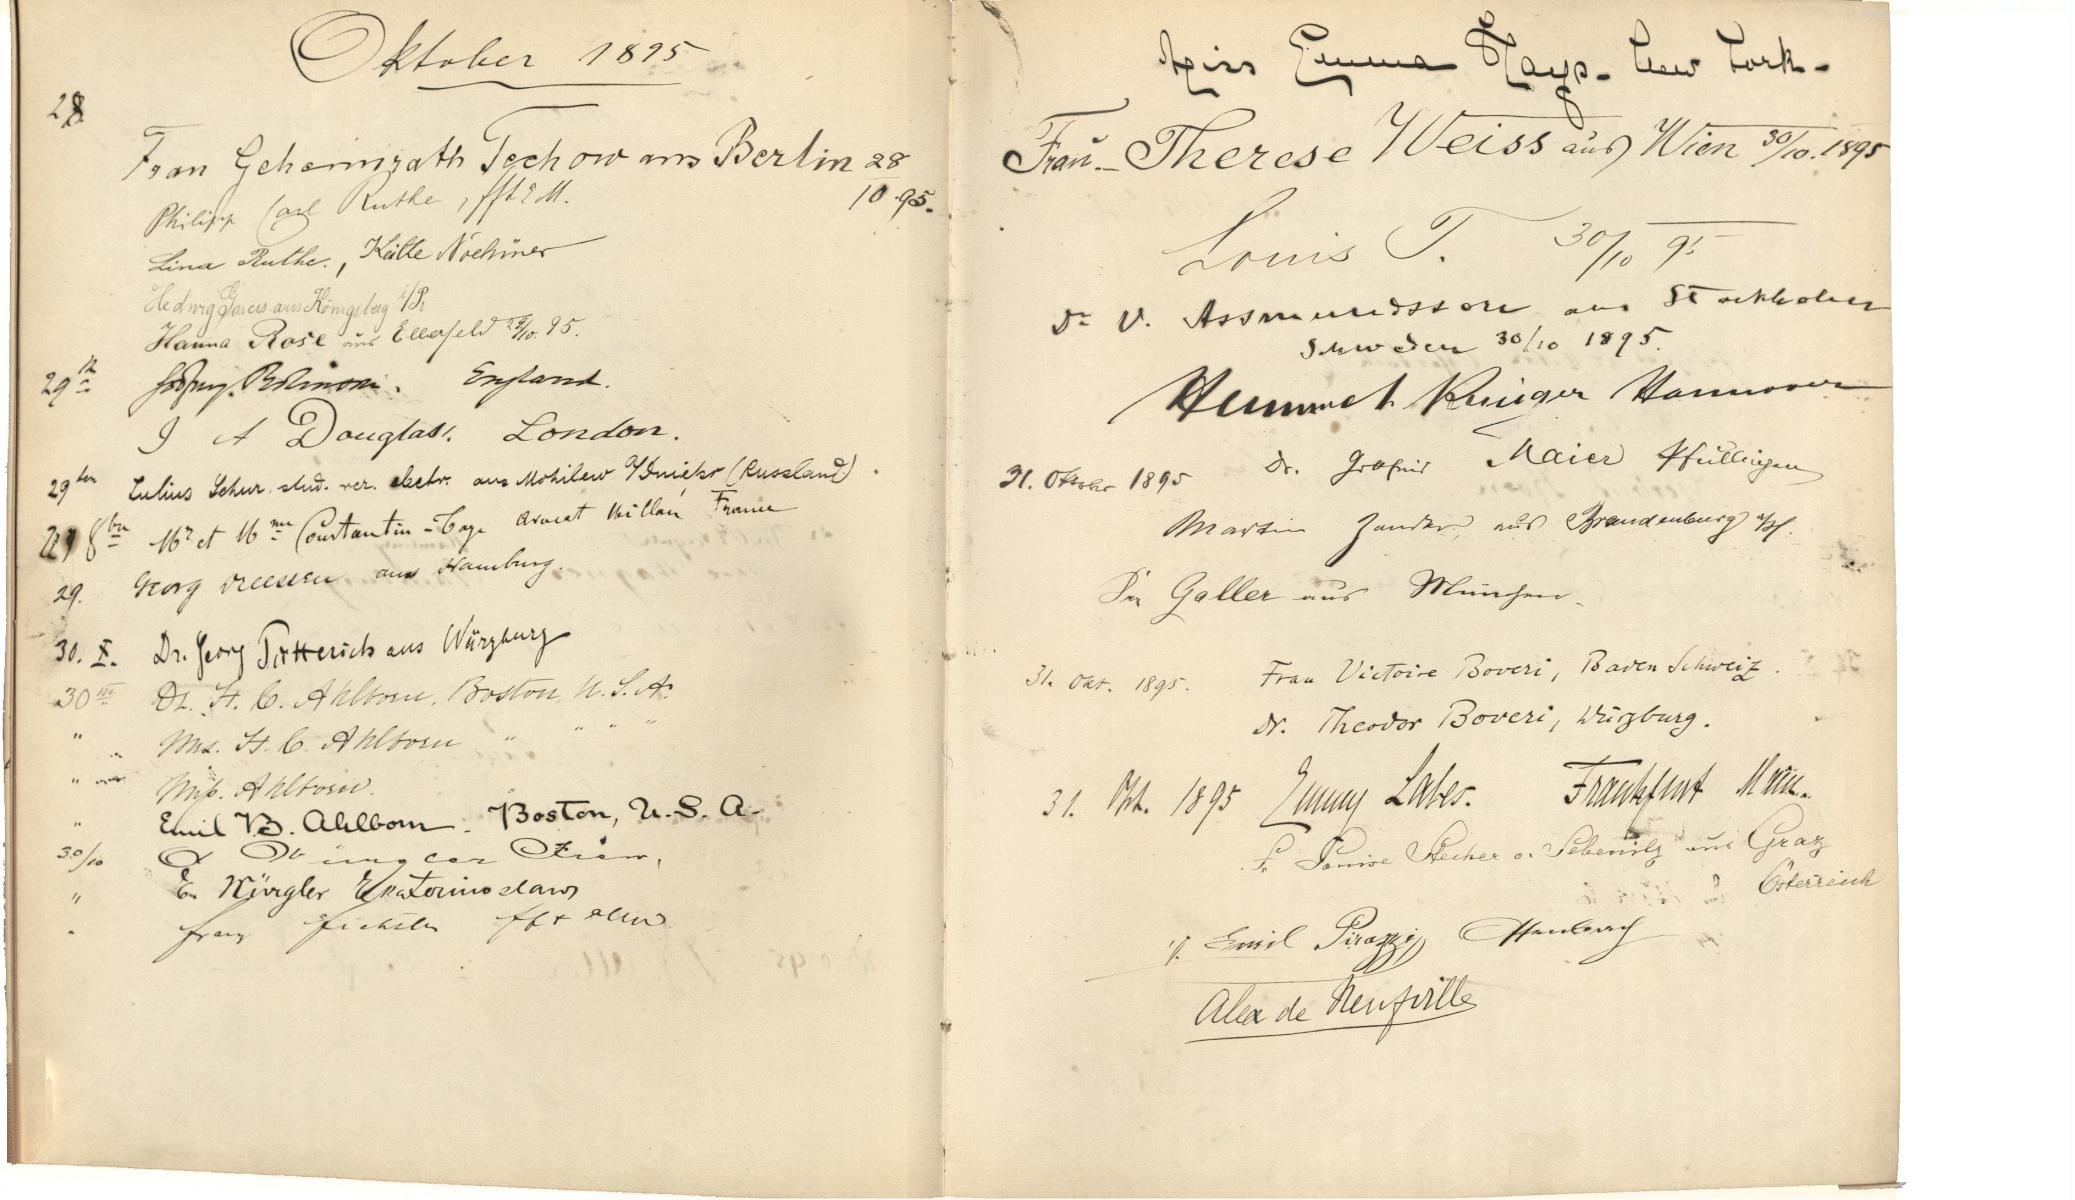 Oktober 1895
28
Frau Geheimrath Techow aus Berlin 28
10.95.
Philipp Carl Ruthe, fft a M.
Lina Ruthe., Käthe
Hedwig aus Königsberg i/Pr
Hanna Rose aus Elberfeld 29/10.95.
29th Robinson. England.
J A Douglas. London.
29ten Julius Schur. stud. rer. electr. aus Mohilew Dniepr (Russland).
29 8bre Mr et Mme Constantin- avocat Millau France
29. Georg aus Hamburg.
30. X. Dr. Georg aus Würzburg
30 Dr. H. C. Ahlborn, Boston, U. S. A.
" " Mrs. H. C. Ahlborn " " " "
" Miss. Ahlborn.
" Emil B. Ahlborn. Boston, U. S. A-
30/10
" Würgler Ekatorinoslaw
" Franz
Miss Emma Hays- New York-
Frau- Therese Weiss aus Wien 30/10.1895
Louis T. 30/10 95
Dr V. Assmundsson aus Stockholm
Schweden 30/10 1895.
Krüger Hannover
31. Oktober 1895 Dr. Maier Pfullingen
Martin Zander, aus Brandenburg a/H.
Galler aus München.
31. Okt. 1895. Frau Victoire Boveri, Baden Schweiz.
Dr. Theodor Boveri, Würzburg.
31. Okt. 1895 Emmy Labes. Frankfurt Main.
Fr Louise Stecher v. Sebenitz aus Graz
Österreich
Emil Pirazzi, Offenbach
Alex de Neufville